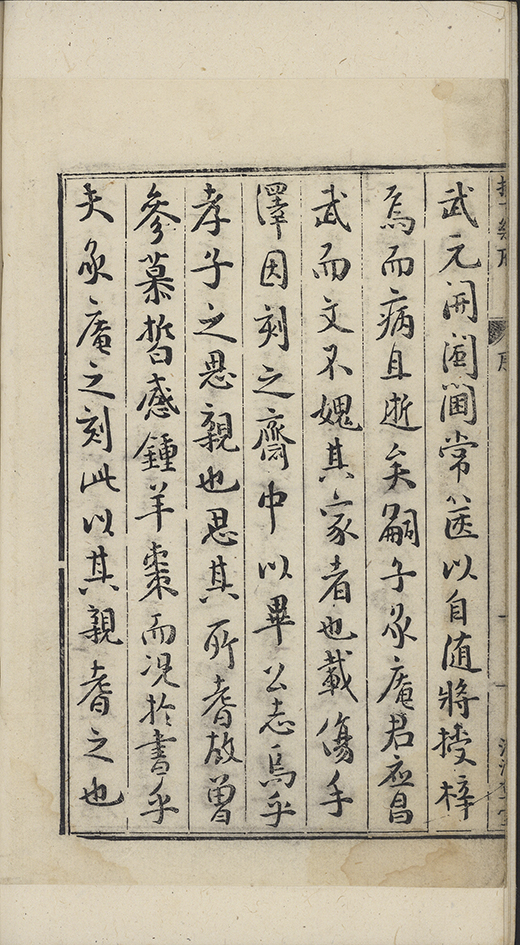 武元開閫閩常以自随將授梓
焉而病且逝矣嗣子豕庵君啟昌
武而文不媿其家者也載傷手
澤因刻之齋中以畢公志烏乎
孝子之思親也思其所耆故曾
參慕晳感鍾羊棗而况扵書乎
夫豕庵之刻此以其親耆之也